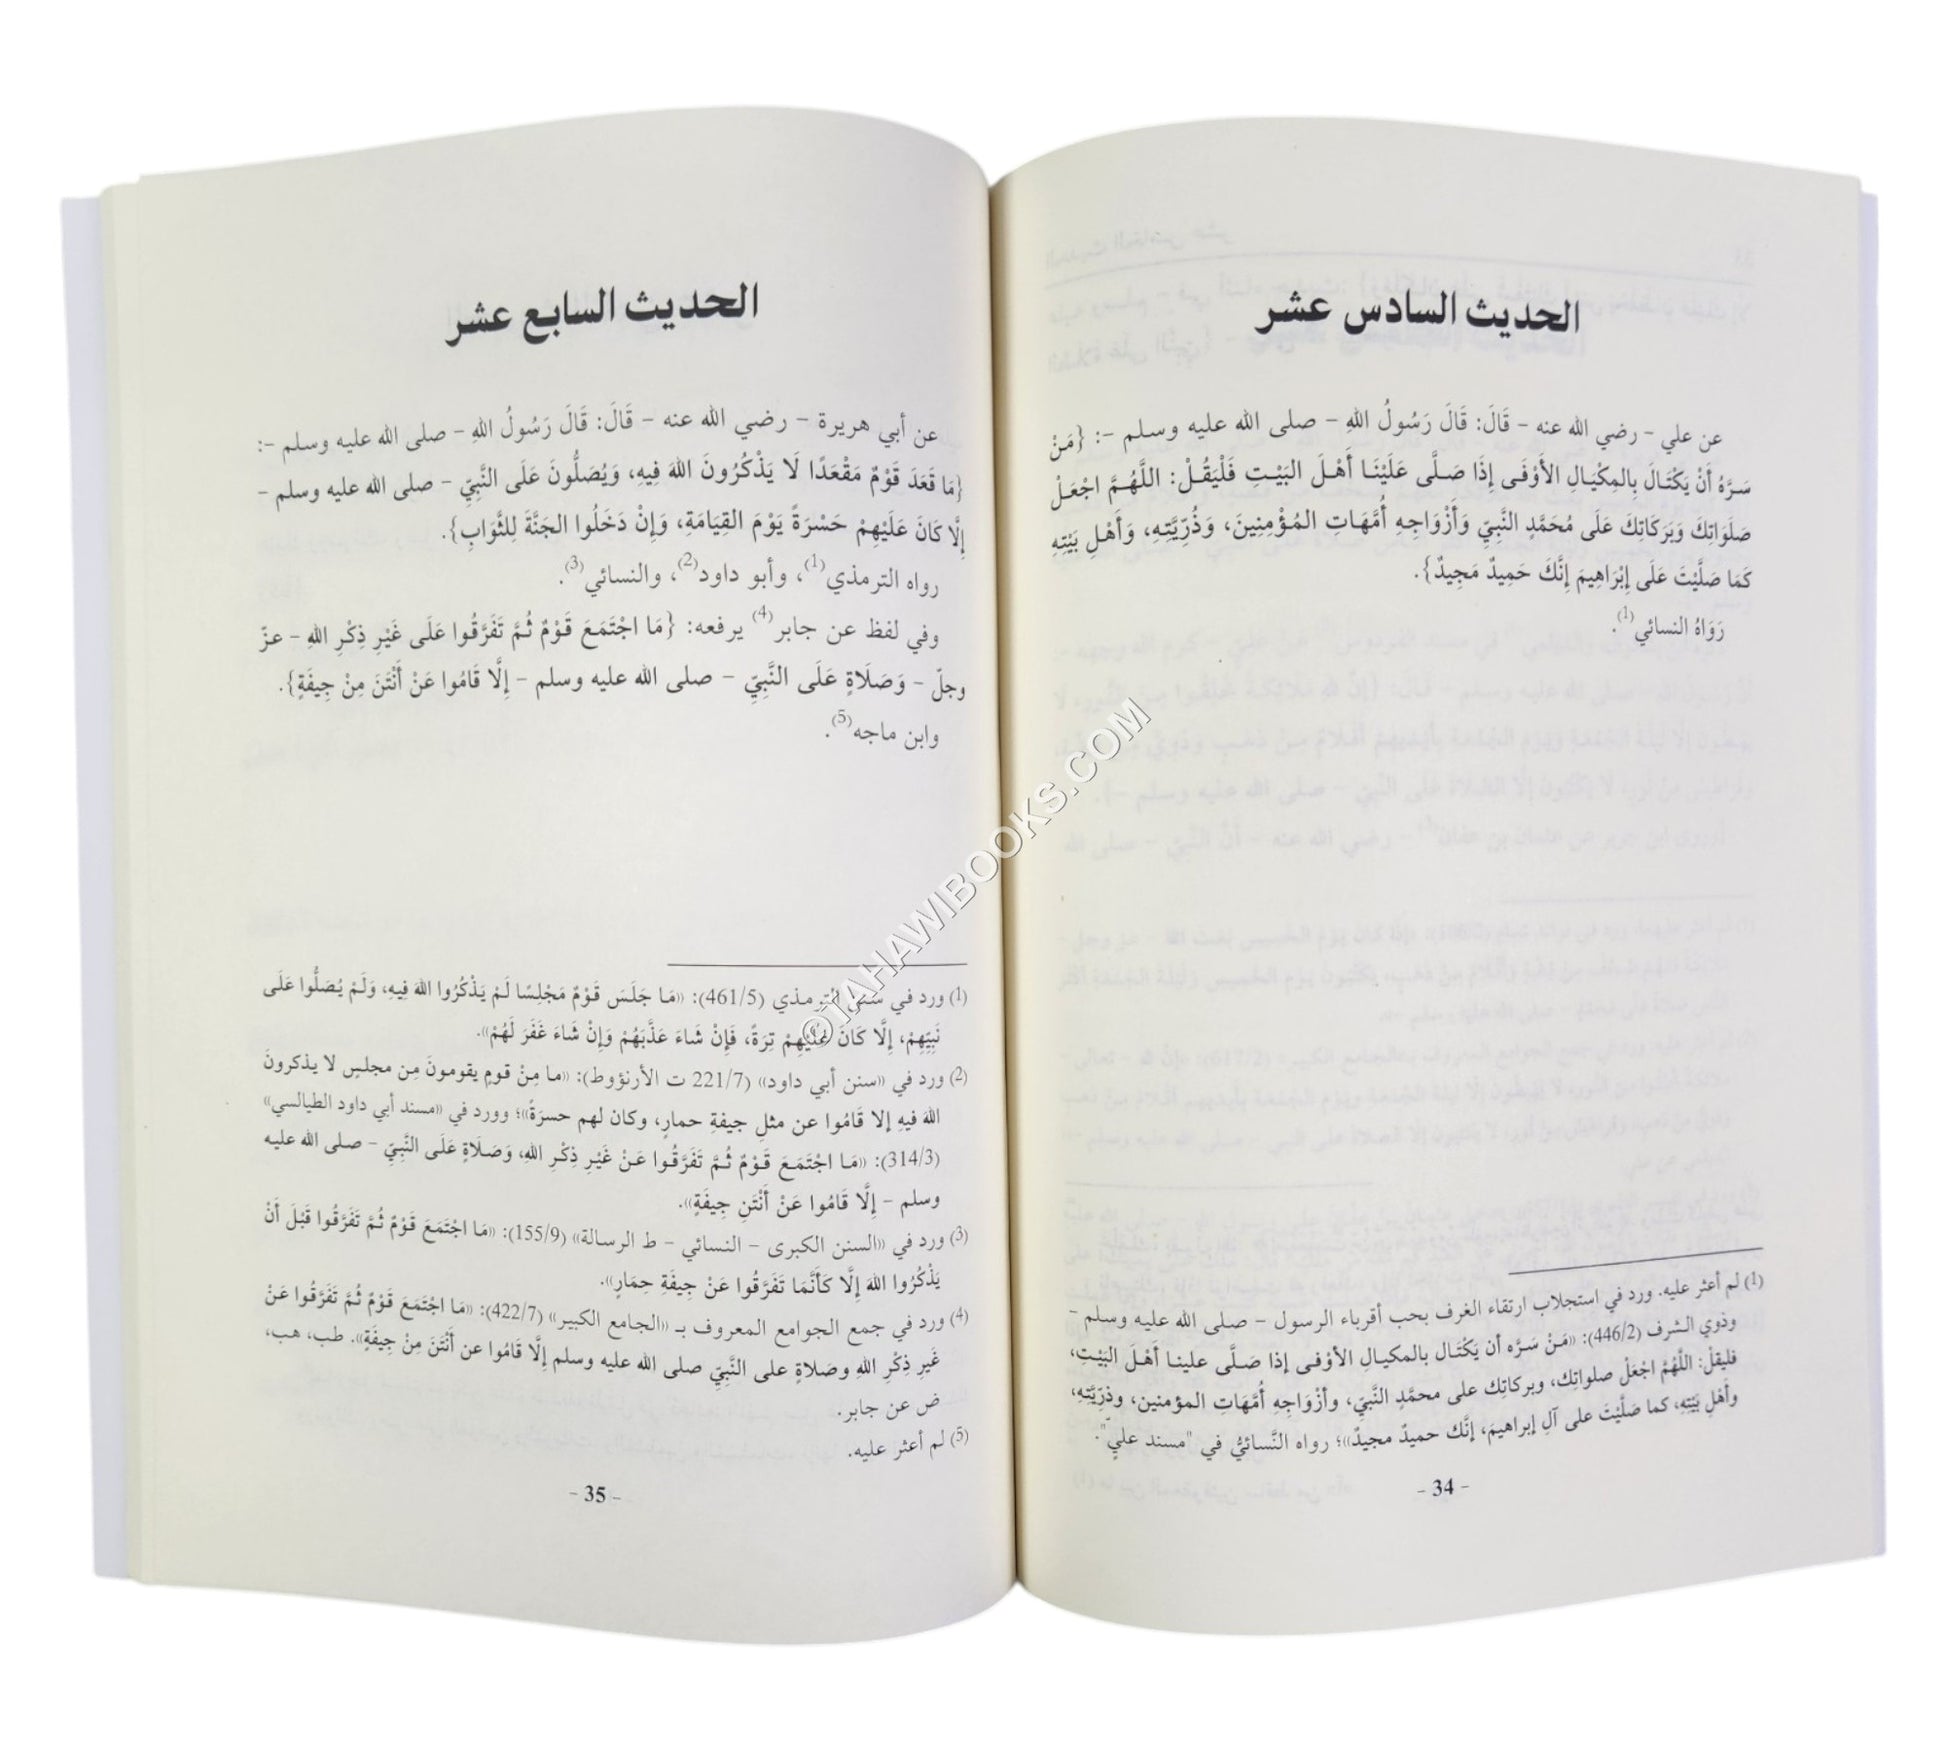 الحديث السادس عشر
عن علي - رضي الله عنه - قَالَ: قَالَ رَسُولُ اللهِ - صلى الله عليه وسلم -: {مَنْ
سَرَّهُ أَنْ يَكْتَالَ بِالمِكْيَالِ الأَوْفَى إِذَا صَلَّى عَلَيْنَا أَهْلَ البَيْتِ فَلْيَقُلْ: اللَّهُمَّ اجْعَلْ
صَلَوَاتِكَ وَبَرَكَاتِكَ عَلَى مُحَمَّدٍ النَّبِيِّ وَأَزْوَاجِهِ أُمَّهَاتِ المُؤْمِنِينَ، وَذُرِّيَّتِهِ، وَأَهْلِ بَيْتِهِ
كَمَا صَلَّيْتَ عَلَى إِبْرَاهِيمَ إِنَّكَ حَمِيدٌ مَجِيدٌ}.
رَوَاهُ النسائي(1).
(1) لم أعثر عليه. ورد في استجلاب ارتقاء الغرف بحب أقرباء الرسول - صلى الله عليه وسلم -
وذوي الشرف (446/2): «مَنْ سَرَّه أن يَكْتَال بالمكيالِ الأوْفى إذا صَلَّى علينا أَهْلَ البَيْتِ،
فليقلْ: اللَّهُمَّ اجْعَلْ صلواتِك، وبركاتِك على محمَّدٍ النَّبيِّ، وأزْواجِهِ أُمَّهَاتِ المؤمنين، وذرِّيَّتِهِ،
وأهْلِ بَيْتِهِ، كما صَلَّيْتَ على آلِ إبراهيمَ، إنَّك حميدٌ مجيدٌ»؛ رواه النَّسائيُّ في "مسند عليٍّ".
- 34 -
الحديث السابع عشر
عن أبي هريرة - رضي الله عنه - قَالَ: قَالَ رَسُولُ اللهِ - صلى الله عليه وسلم -:
{مَا قَعَدَ قَوْمٌ مَقْعَدًا لَا يَذْكُرُونَ اللهَ فِيهِ، وَيُصَلُّونَ عَلَى النَّبِيِّ - صلى الله عليه وسلم -
إِلَّا كَانَ عَلَيْهِمْ حَسْرَةً يَوْمَ القِيَامَةِ، وَإِنْ دَخَلُوا الجَنَّةَ لِلثَّوَابِ}.
رواه الترمذي(1)، وأبو داود(2)، والنسائي(3).
وفي لفظ عن جابر(4) يرفعه: {مَا اجْتَمَعَ قَوْمٌ ثُمَّ تَفَرَّقُوا عَلَى غَيْرِ ذِكْرِ اللهِ - عزّ
وجلّ - وَصَلَاةٍ عَلَى النَّبِيِّ - صلى الله عليه وسلم - إِلَّا قَامُوا عَنْ أَنْتَنَ مِنْ جِيفَةٍ}.
وابن ماجه(5).
(1) ورد في سنن الترمذي (461/5): «مَا جَلَسَ قَوْمٌ مَجْلِسًا لَمْ يَذْكُرُوا اللهَ فِيهِ، وَلَمْ يُصَلُّوا عَلَى
نَبِيِّهِمْ، إِلَّا كَانَ عَلَيْهِمْ تِرَةً، فَإِنْ شَاءَ عَذَّبَهُمْ وَإِنْ شَاءَ غَفَرَ لَهُمْ».
(2) ورد في «سنن أبي داود» (221/7 ت الأرنؤوط): «ما مِنْ قومٍ يقومونَ مِن مجلسٍ لا يذكرونَ
اللهَ فيهِ إلا قَامُوا عن مثلِ جيفةِ حمارٍ، وكان لهم حسرَةً»؛ وورد في «مسند أبي داود الطيالسي»
(314/3): «مَا اجْتَمَعَ قَوْمٌ ثُمَّ تَفَرَّقُوا عَنْ غَيْرِ ذِكْرِ اللهِ، وَصَلَاةٍ عَلَى النَّبِيِّ - صلى الله عليه
وسلم - إِلَّا قَامُوا عَنْ أَنْتَنِ جِيفَةٍ».
(3) ورد في «السنن الكبرى - النسائي - ط الرسالة» (155/9): «مَا اجْتَمَعَ قَوْمٌ ثُمَّ تَفَرَّقُوا قَبْلَ أَنْ
يَذْكُرُوا اللهَ إِلَّا كَأَنَّمَا تَفَرَّقُوا عَنْ جِيفَةِ حِمَارٍ».
(4) ورد في جمع الجوامع المعروف بـ «الجامع الكبير» (422/7): «مَا اجْتَمَعَ قَوْمٌ ثُمَّ تَفَرَّقُوا عَنْ
غَيرِ ذِكْرِ اللهِ وصَلاةٍ على النَّبِيِّ صلى الله عليه وسلم إِلَّا قَامُوا عن أَنْتَنَ مِنْ جِيفَةٍ». طب، هب،
ض عن جابر.
(5) لم أعثر عليه.
- 35 -
©TAHAWIBOOKS.COM